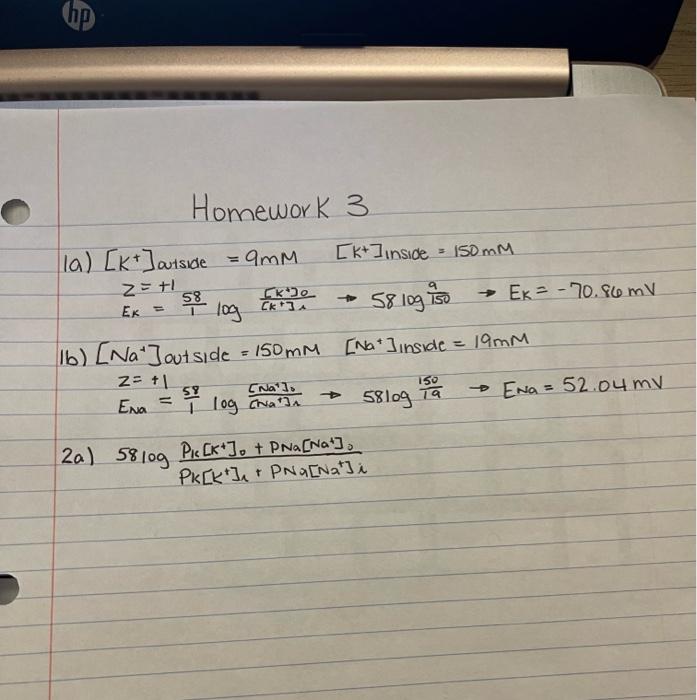 hp
Homework 3
1a) [K+]outside = 9mM [K+]inside = 150mM
Z = +1
EK = 58/1 log [K+]o/[K+]i → 58 log 9/150 → EK = -70.86 mV
1b) [Na+]outside = 150mM [Na+]inside = 19mM
Z = +1
ENa = 58/1 log [Na+]o/[Na+]i → 58log 150/19 → ENa = 52.04 mV
2a) 58 log PK[K+]o + PNa[Na+]o
PK[K+]i + PNa[Na+]i